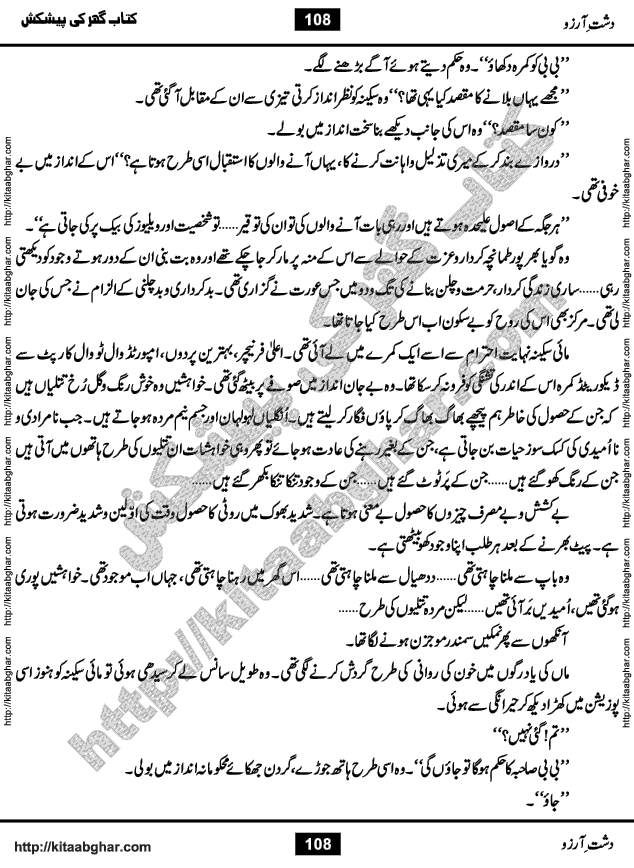 کتاب گھر کی پیشکش
108
دشتِ آرزو
’’بی بی کو کمرہ دکھاؤ‘‘۔ وہ حکم دیتے ہوئے آگے بڑھنے لگے۔
’’مجھے یہاں بلانے کا مقصد کیا یہی تھا؟‘‘ وہ سکینہ کو نظر انداز کرتی تیزی سے ان کے مقابل آ گئی تھی۔
’’کون سا مقصد؟‘‘ وہ اس کی جانب دیکھے بنا سخت انداز میں بولے۔
’’دروازے بند کر کے میری تذلیل و اہانت کرنے کا، یہاں آنے والوں کا استقبال اسی طرح ہوتا ہے؟‘‘ اس کے انداز میں بے
خوفی تھی۔
’’ہر جگہ کے اصول علیحدہ ہوتے ہیں اور رہی بات آنے والوں کی تو ان کی توقیر......تو شخصیت اور ویلیوز کی بیک پر کی جاتی ہے‘‘۔
وہ گویا بھر پور طمانچہ کردار و عزت کے حوالے سے اس کے منہ پر مار کر جا چکے تھے اور وہ بت بنی ان کے دور ہوتے وجود کو دیکھتی
رہی......ساری زندگی کردار، حرمت و چلن بنانے کی تگ و دو میں جس عورت نے گزاری تھی۔ بدکرداری و بدچلنی کے الزام نے جس کی جان
لی تھی۔ مر کر بھی اس کی روح کو بے سکون اب اس طرح کیا جاتا تھا۔
مائی سکینہ نہایت احترام سے اسے ایک کمرے میں لے آئی تھی۔ اعلیٰ فرنیچر، بہترین پردوں، امپورٹڈ وال ٹو وال کارپٹ سے
ڈیکوریٹڈ کمرہ اس کے اندر کی تشنگی کو فرو نہ کر سکا تھا۔ وہ بے جان انداز میں صوفے پر بیٹھ گئی تھی۔ خواہشیں وہ خوش رنگ و گل رُخ تتلیاں ہیں
کہ جن کے حصول کی خاطر ہم پیچھے بھاگ بھاگ کر پاؤں فگار کر لیتے ہیں۔ اُنگلیاں لہولہان اور جسم نیم مردہ ہو جاتے ہیں۔ جب نامرادی و
نا اُمیدی کی کسک سوزِ حیات بن جاتی ہے، جن کے بغیر رہنے کی عادت ہو جائے تو پھر وہی خواہشات ان تتلیوں کی طرح ہاتھوں میں آتی ہیں
جن کے رنگ کھو گئے ہیں......جن کے پَر ٹوٹ گئے ہیں......جن کے وجود تنکا تنکا بکھر گئے ہیں......
بے کشش و بے مصرف چیزوں کا حصول بے معنی ہوتا ہے۔ شدید بھوک میں روٹی کا حصول وقت کی اوّلین و شدید ضرورت ہوتی
ہے۔ پیٹ بھرنے کے بعد ہر طلب اپنا وجود کھو بیٹھتی ہے۔
وہ باپ سے ملنا چاہتی تھی......ددھیال سے ملنا چاہتی تھی......اس گھر میں رہنا چاہتی تھی، جہاں اب موجود تھی۔ خواہشیں پوری
ہو گئی تھیں، اُمیدیں بَر آئی تھیں......لیکن مردہ تتلیوں کی طرح......
آنکھوں سے پھر نمکیں سمندر موجزن ہونے لگا تھا۔
ماں کی یاد رگوں میں خون کی روانی کی طرح گردش کرنے لگی تھی۔ وہ طویل سانس لے کر سیدھی ہوئی تو مائی سکینہ کو ہنوز اسی
پوزیشن میں کھڑا دیکھ کر حیرانگی سے ہوئی۔
’’تم! گئی نہیں؟‘‘
’’بی بی صاحبہ کا حکم ہو گا تو جاؤں گی‘‘۔ وہ اسی طرح ہاتھ جوڑے، گردن جھکائے محکومانہ انداز میں بولی۔
’’جاؤ‘‘۔
http://kitaabghar.com
http://kitaabghar.com
http://kitaabghar.com
http://kitaabghar.com
http://kitaabghar.com
http://kitaabghar.com
http://kitaabghar.com
http://kitaabghar.com
http://kitaabghar.com
http://kitaabghar.com
http://kitaabghar.com
http://kitaabghar.com
کتاب گھر کی پیشکش
http://kitaabghar.com
http://kitaabghar.com
108
دشتِ آرزو